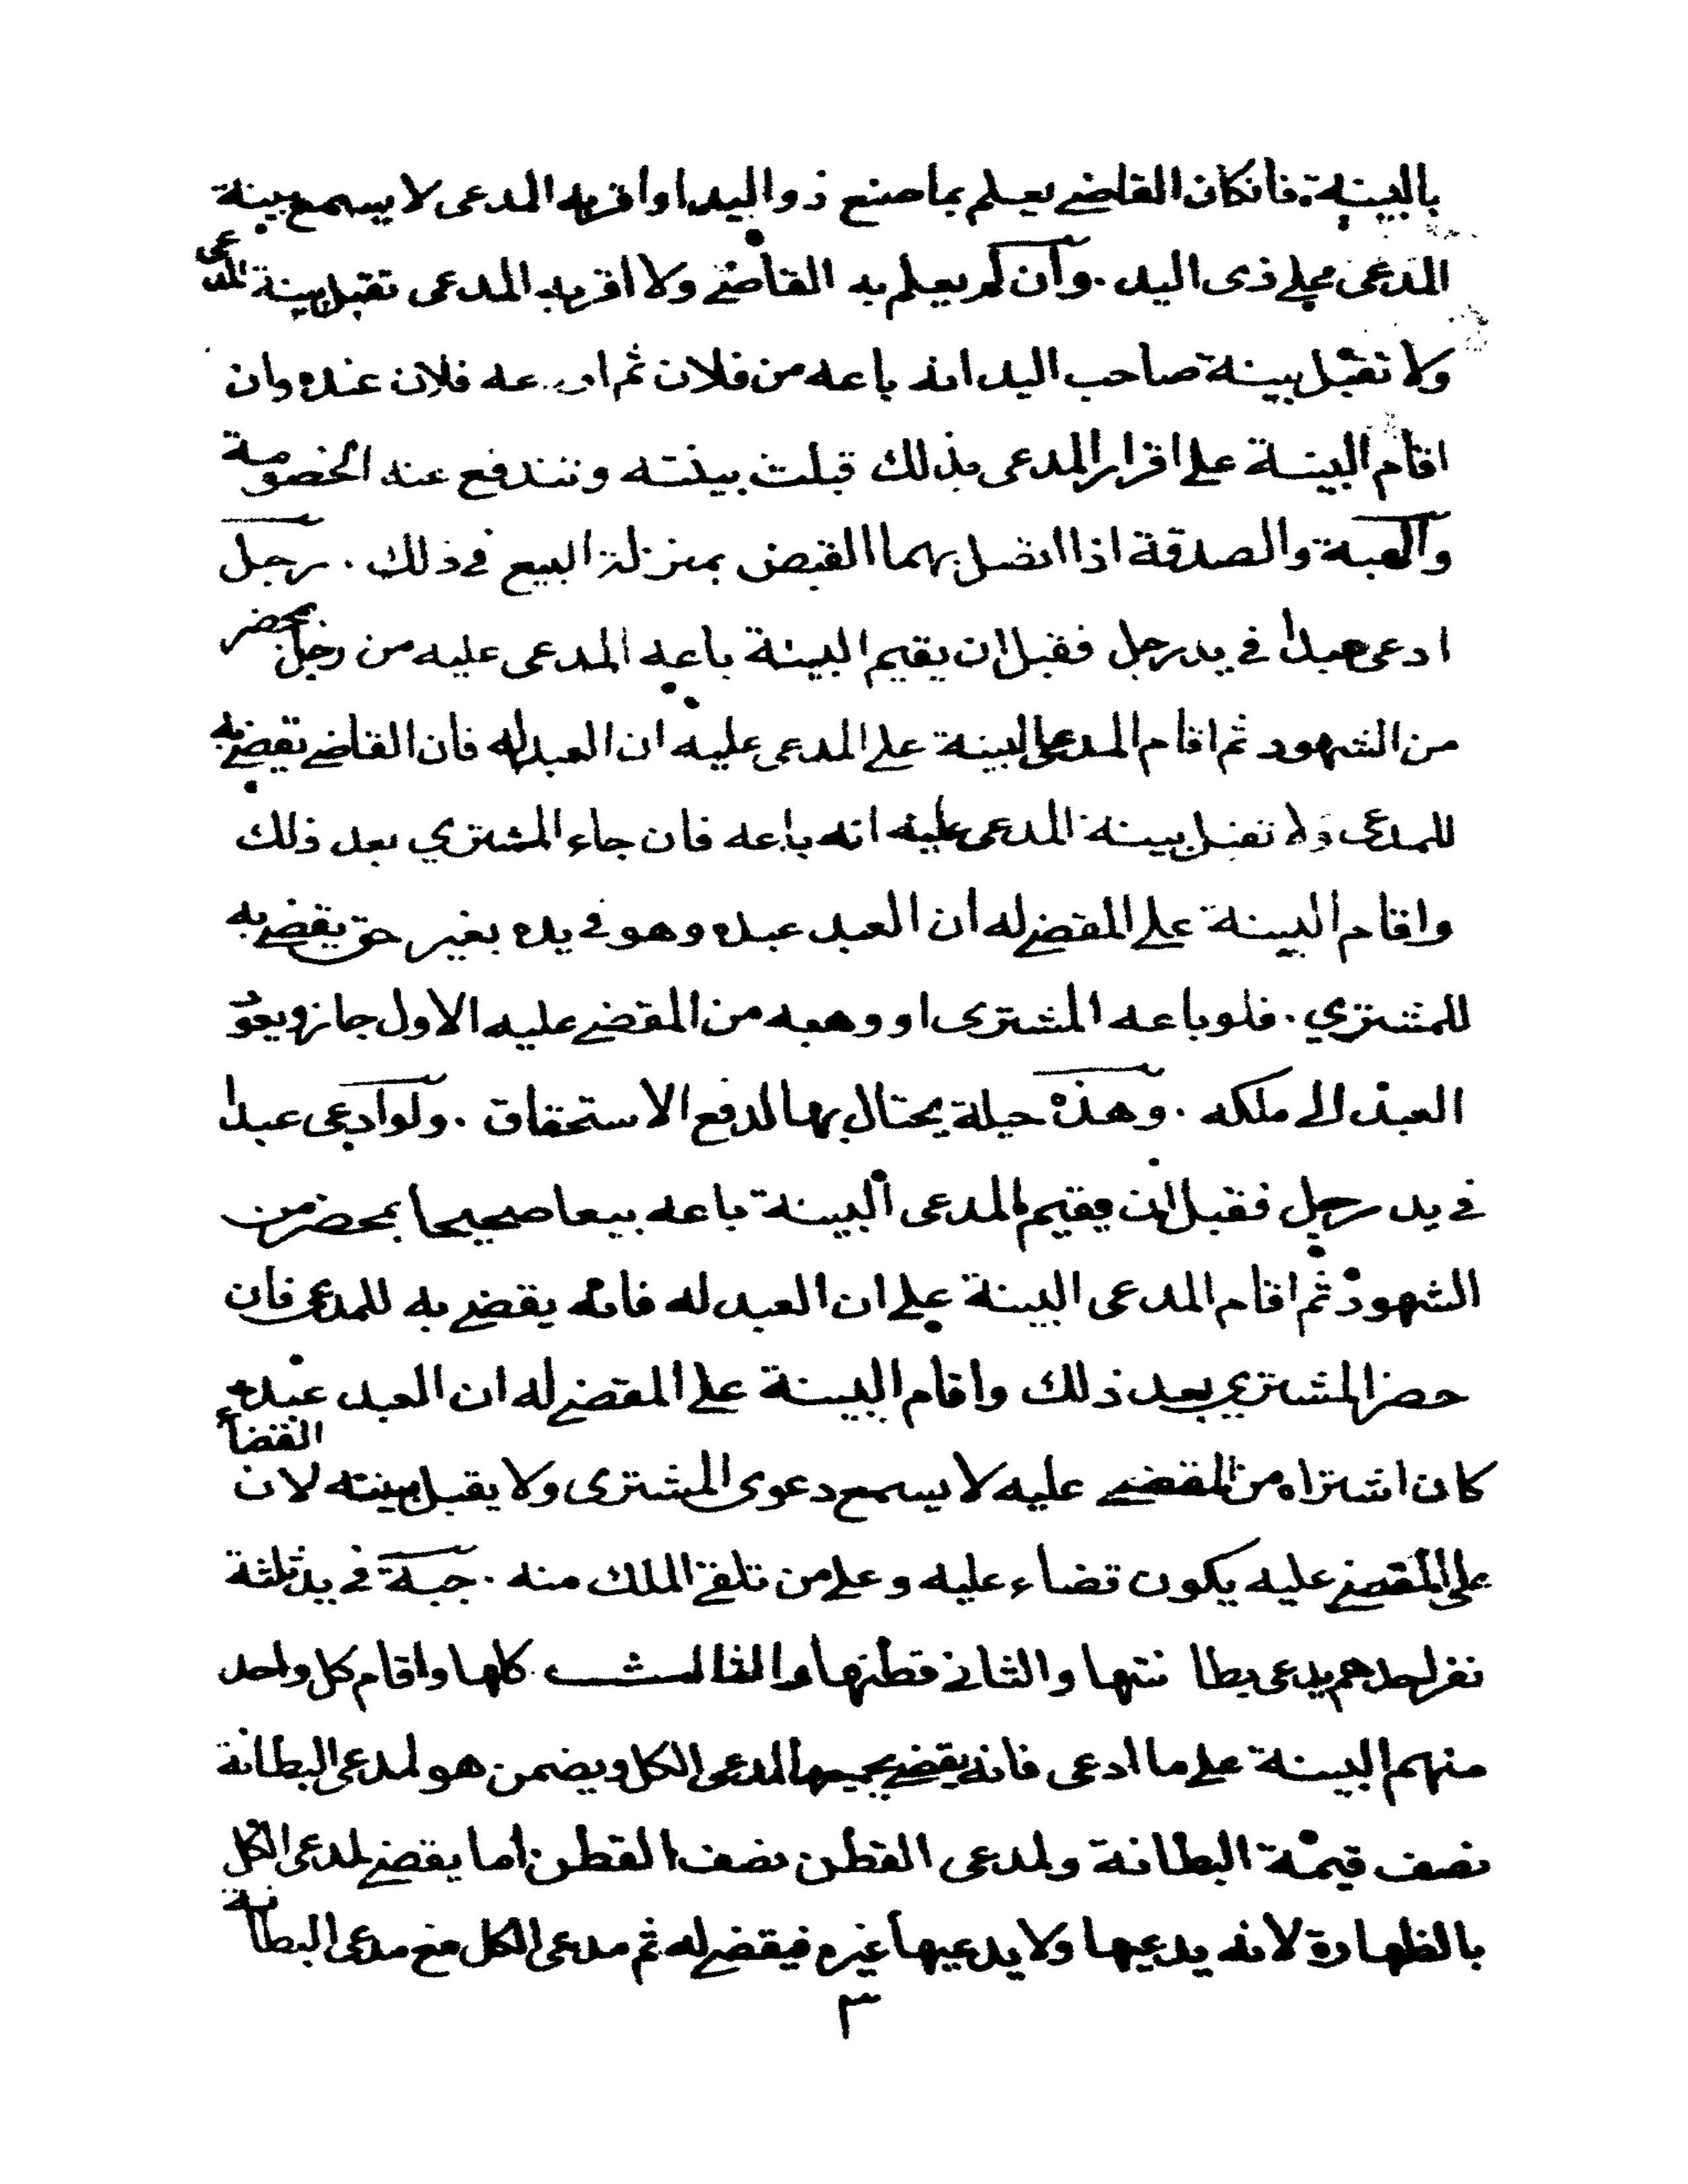 بالبينة. فانكان القاضى يعلم بما صنع ذو اليد او اقر به المدعى لا يسمع بينة
المدعى على ذى اليد. وان لم يعلم به القاضى ولا اقر به المدعى تقبل بينة المدعى
ولا تقبل بينة صاحب اليد انه باعه من فلان ثم اودعه فلان عنده وان
اقام البينة على اقرار المدعى بذلك قبلت بينته وتندفع عنه الخصومة
والهبة والصدقة اذا اتصل بهما القبض بمنزلة البيع فى ذلك. رجل
ادعى عبدا في يد رجل فقبل ان يقيم البينة باعه المدعى عليه من رجل بمحضر
من الشهود ثم اقام المدعى البينة على المدعى عليه ان العبد له فان القاضى يقضى به
للمدعى ولا تقبل بينة المدعى عليه انه باعه فان جاء المشتري بعد ذلك
واقام البينة على المقضى له ان العبد عبده وهو في يده بغير حق يقضى به
للمشتري. فلو باعه المشترى او وهبه من المقضى عليه الاول جاز ويعود
العبد الى ملكه. وهذه حيلة يحتال بها لدفع الاستحقاق. ولو ادعى عبدا
في يد رجل فقبل ان يقيم المدعى البينة باعه بيعا صحيحا بمحضر من
الشهود ثم اقام المدعى البينة على ان العبد له فانه يقضى به للمدعى فان
حضر المشتري بعد ذلك واقام البينة على المقضى له ان العبد عبده
كان اشتراه من المقضى عليه لا يسمع دعوى المشترى ولا يقبل بينته لان القضاء
على المقضى عليه يكون قضاء عليه وعلى من تلقى الملك منه. جبة في يد ثلثة
نفر احدهم يدعى بطا نتها والثانى قطنها والثالث كلها واقام كل واحد
منهم البينة على ما ادعى فانه يقضى بجميعها لمدعى الكل ويضمن هو لمدعى البطانة
نصف قيمة البطانة ولمدعى القطن نصف القطن اما يقضى لمدعى الكل
بالظهارة لانه يدعيها ولا يدعيها غيره فيقضى له ثم مدعى الكل مع مدعى البطانة
٣